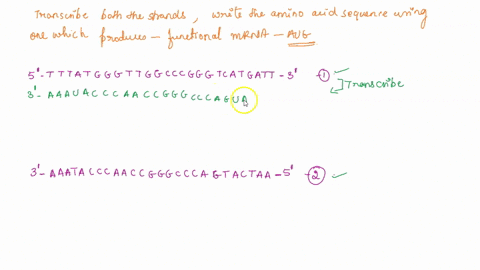 Transcribe both the strands, write the amino acid sequence using
one which produces - functional mRNA - AUG
5' - TTTATGGGTTGGCCCGGGTCATGATT - 3' - 1
3' - AAAUACCCAACCGGGCCCAGUA
Transcribe
3' - AAATACCCAACCGGGCCCAGTACTAA - 5' - 2